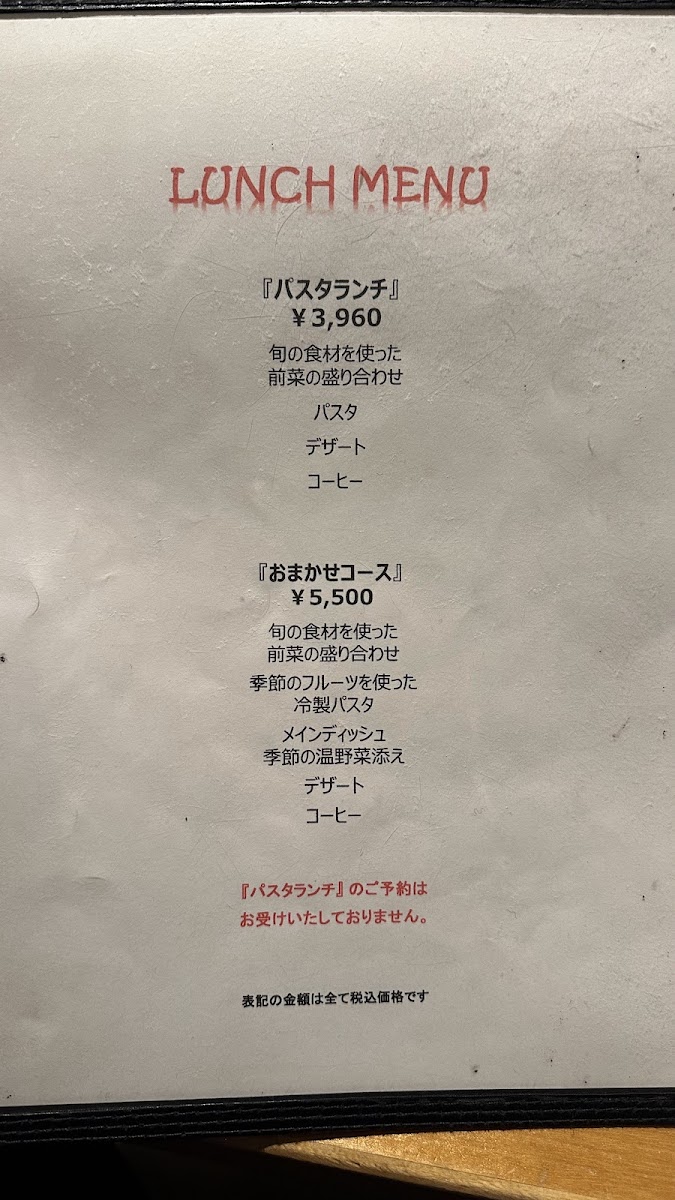 LUNCH MENU
『パスタランチ』
￥3,960
旬の食材を使った
前菜の盛り合わせ
パスタ
デザート
コーヒー
『おまかせコース』
￥5,500
旬の食材を使った
前菜の盛り合わせ
季節のフルーツを使った
冷製パスタ
メインディッシュ
季節の温野菜添え
デザート
コーヒー
『パスタランチ』のご予約は
お受けいたしておりません。
表記の金額は全て税込価格です